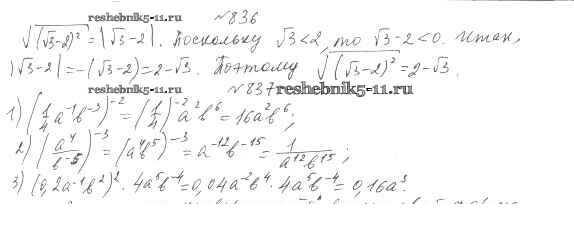 reshebnik5-11.ru №836
√(√3-2)² = |√3-2|. Поскольку √3<2, то √3-2<0. Итак,
|√3-2| = -(√3-2) = 2-√3. Поэтому √(√3-2)² = 2-√3.
№837 reshebnik5-11.ru
1) (1/4 a⁻¹b⁻³)⁻² = (1/4)⁻² a² b⁶ = 16a²b⁶;
2) (a⁴/b⁻⁵)⁻³ = (a⁴b⁵)⁻³ = a⁻¹²b⁻¹⁵ = 1/a¹²b¹⁵;
3) (0,2a⁻¹b²)² · 4a⁵b⁻⁴ = 0,04a⁻²b⁴ · 4a⁵b⁻⁴ = 0,16a³.